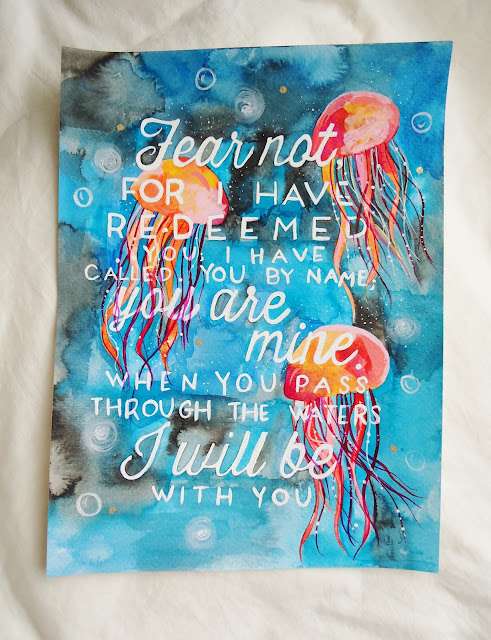 Fear not,
FOR I HAVE
REDEEMED
YOU; I HAVE
CALLED YOU BY NAME,
you are
mine.
WHEN YOU PASS
THROUGH THE WATERS
I will be
WITH YOU